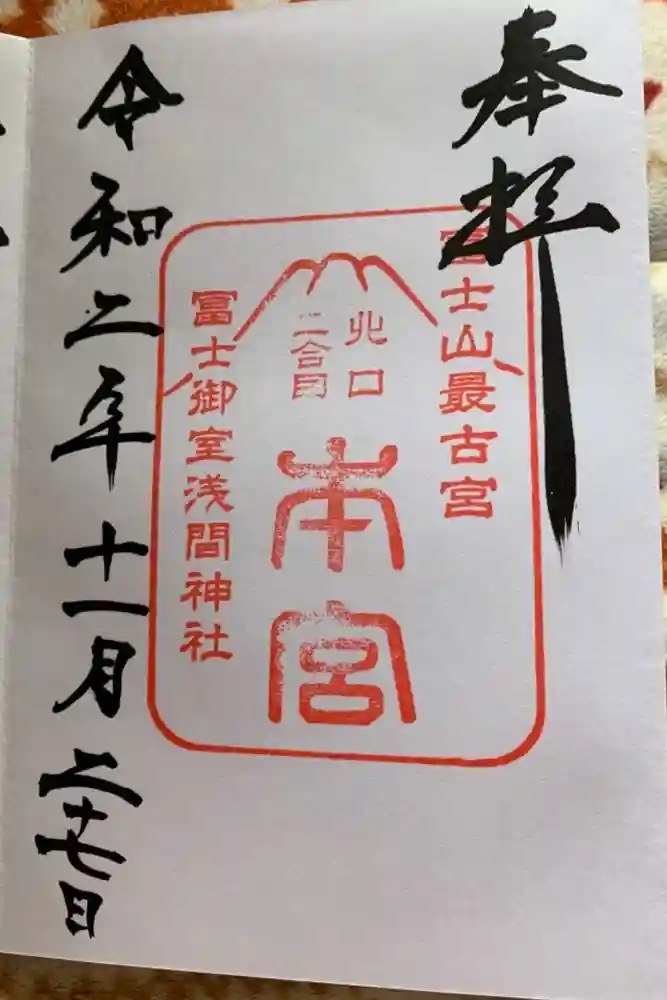 奉拝
冨士山最古宮
北口
二合目
本宮
冨士御室浅間神社
令和二年十一月二十七日